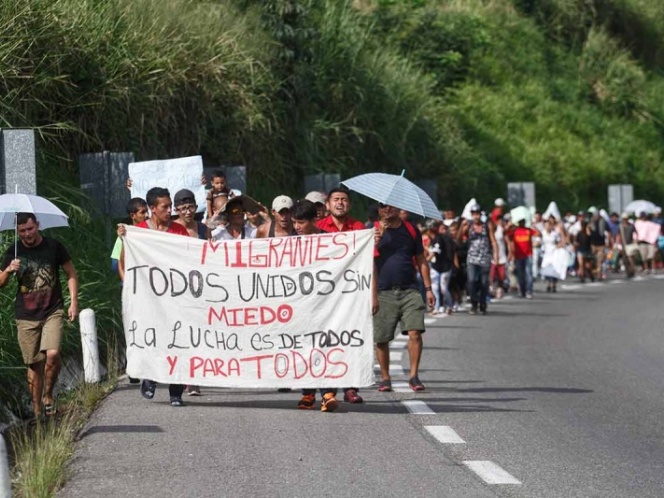 ¡MIGRANTES!
TODOS UNIDOS SIN
MIEDO
LA LUCHA ES DE TODOS
Y PARA TODOS